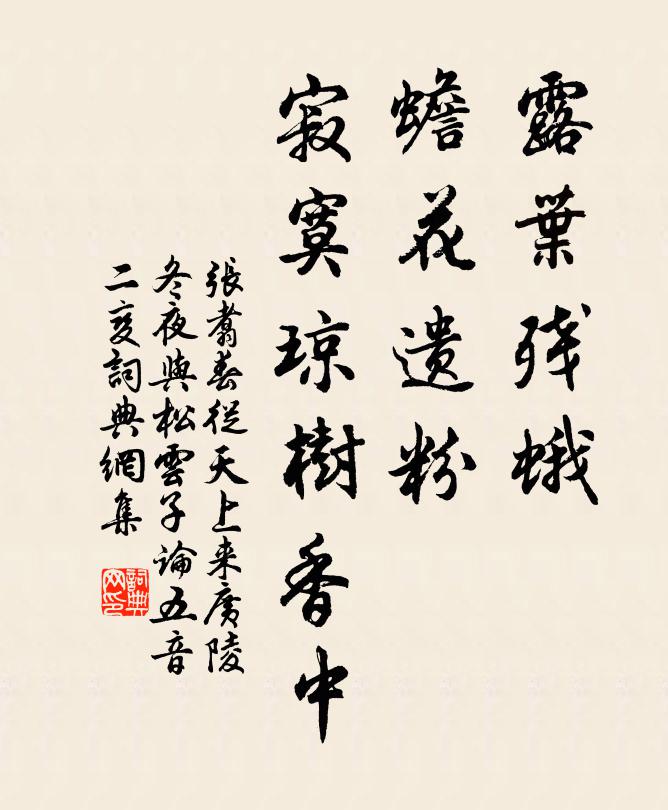 露葉残蛾
蟾花遺粉
寂寞琼樹香中
張翥春從天上来廣陵
冬夜與松雲子論五音
二变詞典網集
詞典
网印